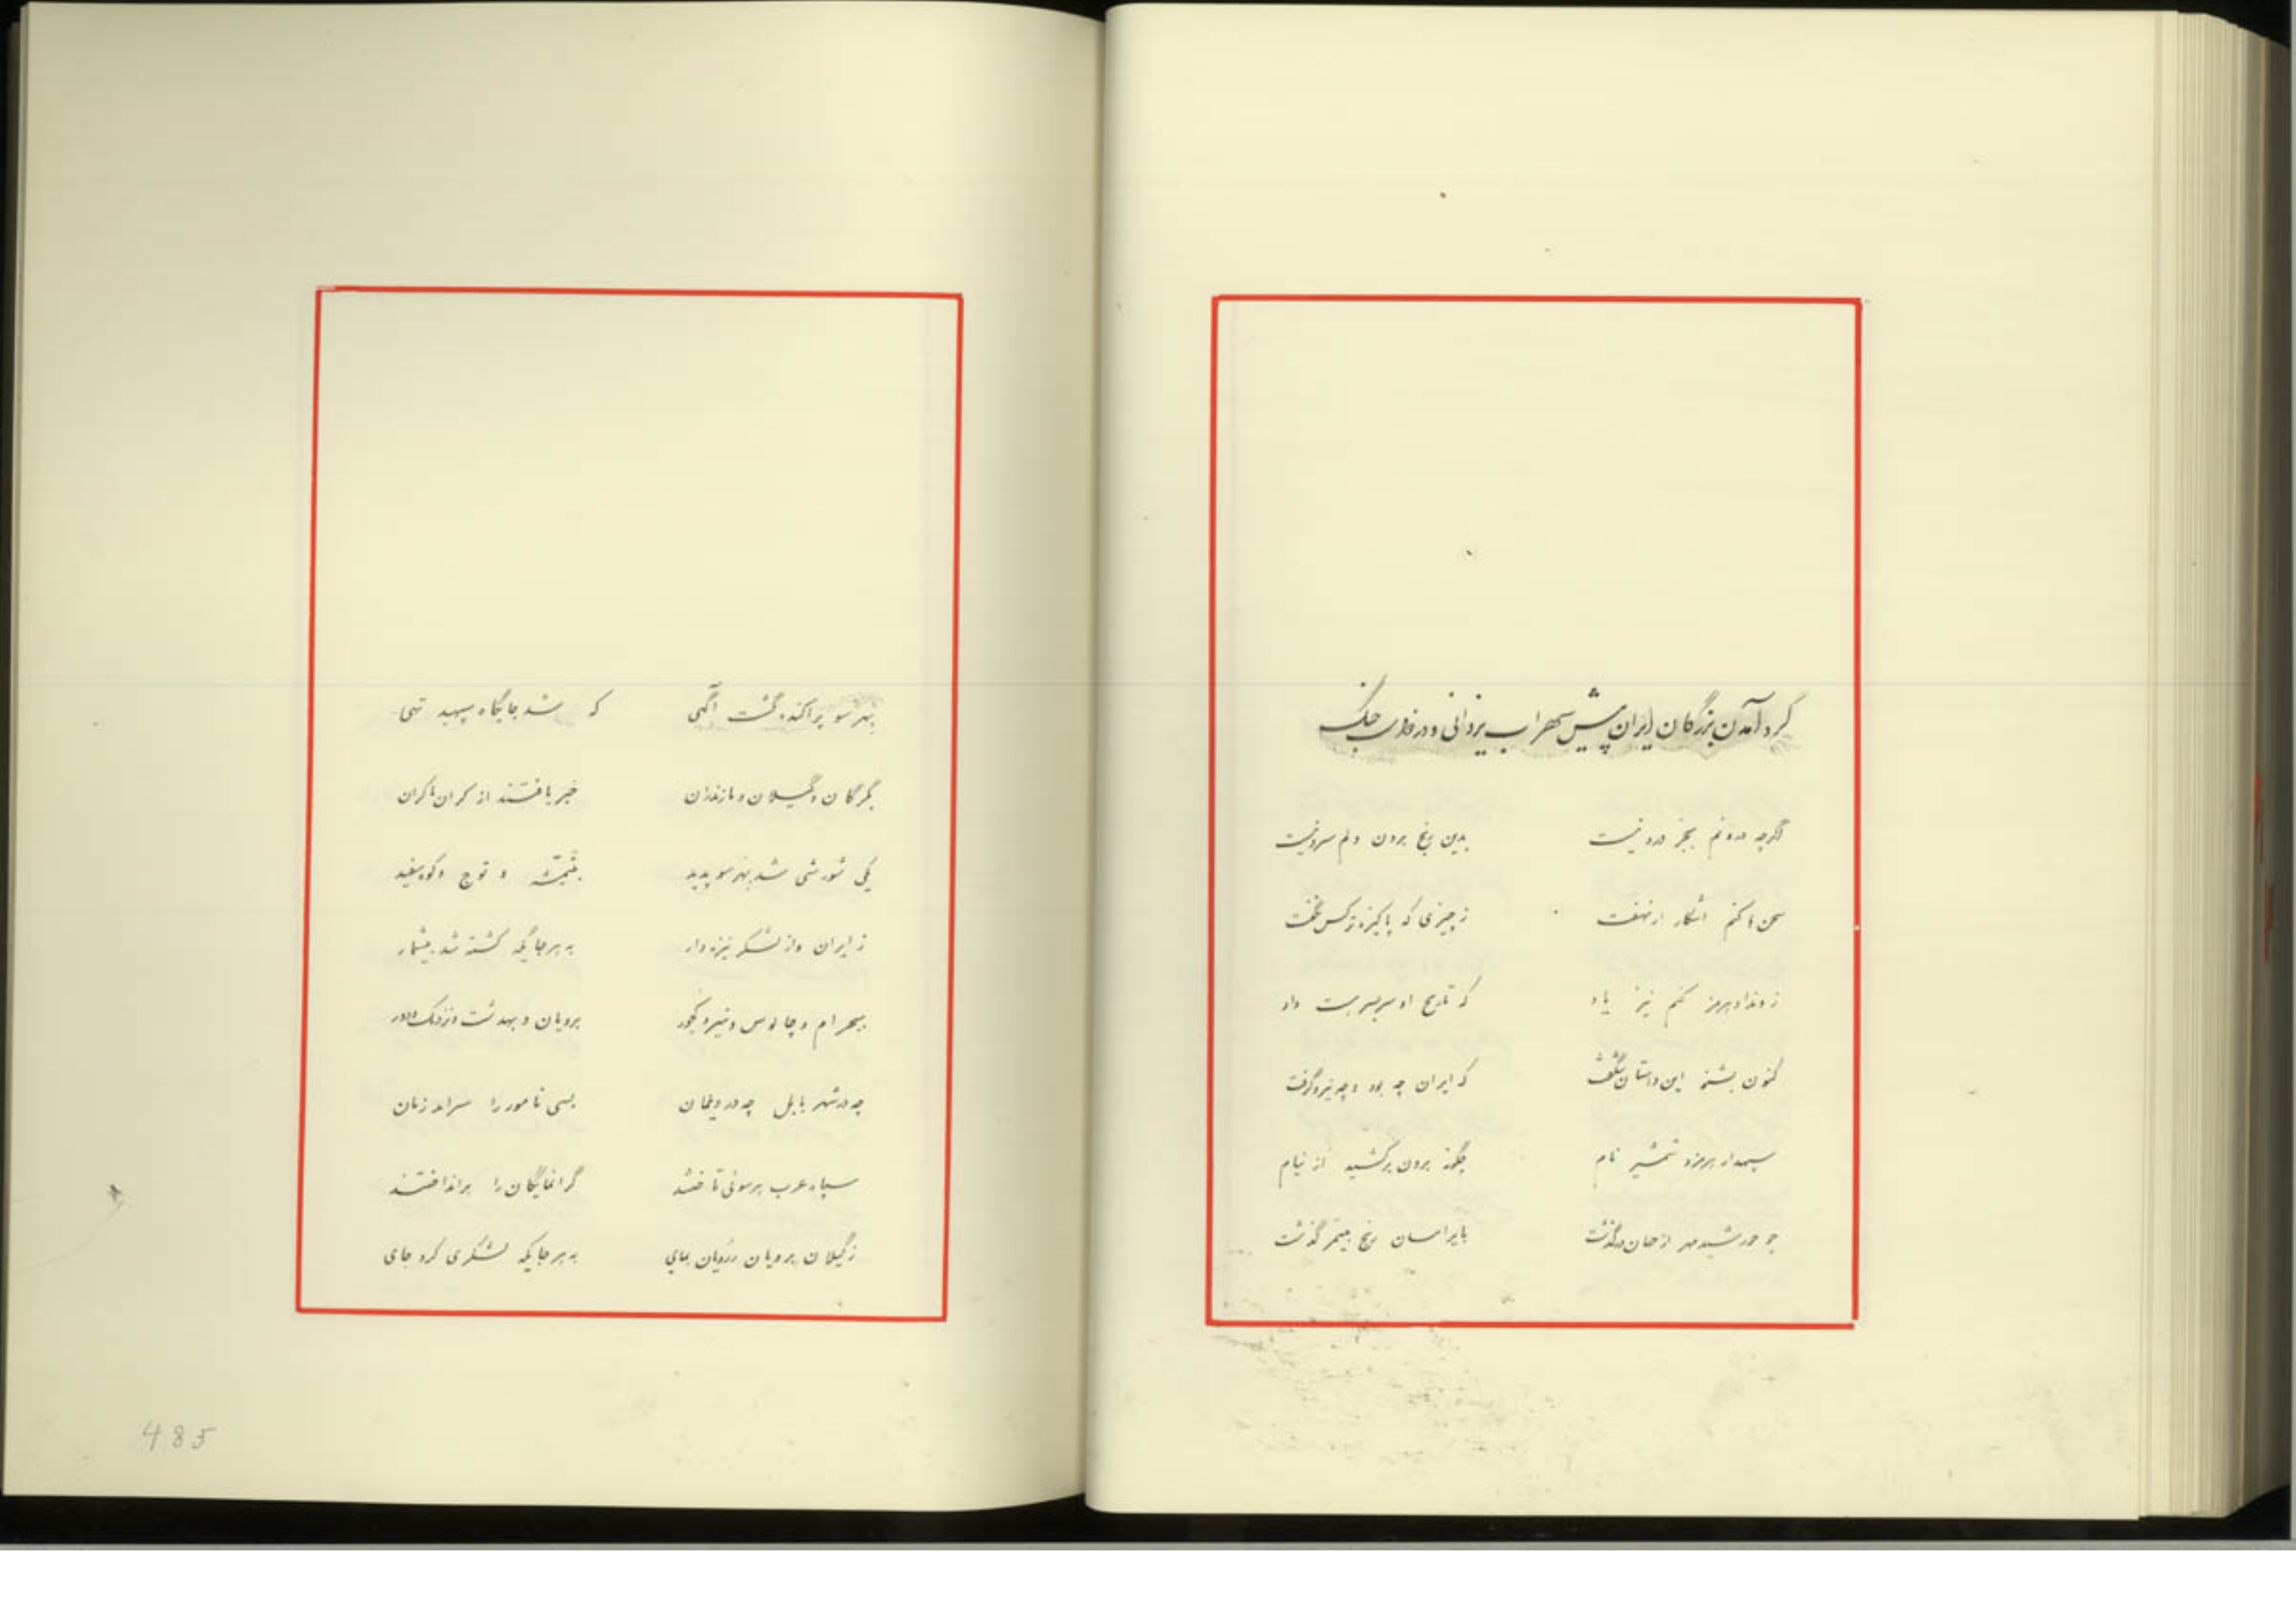 گرد آمدن بزرگان ایران پیش سهراب یزدانی و در جنگ
اگرچه بجز درد نیست بدین رنج بردن دلم سرد نیست
سخن کنم اشکار از نهفت ز چیزی که پاکیزه کس نگفت
ز ونداد هرمز کنم نیز یاد که تاریخ او سربسر هست داد
کنون بشنو این داستان شگفت که ایران چه بود و چه نیرو گرفت
سپهدار هرمزد شمشیر نام چگونه برون برکشید از نیام
چو خورشید مهر از جهان درگذشت رنج بیمر گذشت
بهر سو پراکنده گشت آگهی که شد جایگاه سپهبد تهی
بگرگان و گیلان و مازندران خبر یافتند از کران تا کران
یکی شورشی شد بهر سو پدید بتمیشه و توج و کوه سفید
ز ایران و از لشکر نیزه دار به هر جایگه کشته شد بیشمار
و چالوس و نیرو کجور برویان و
چه در شهر بابل چه در دیلمان بسی نامور را سرامد زمان
سپاه عرب هر سوئی تاختند گرانمایگان را برانداختند
ز گیلان برویان به هر جایگه لشکری کرد جای
485